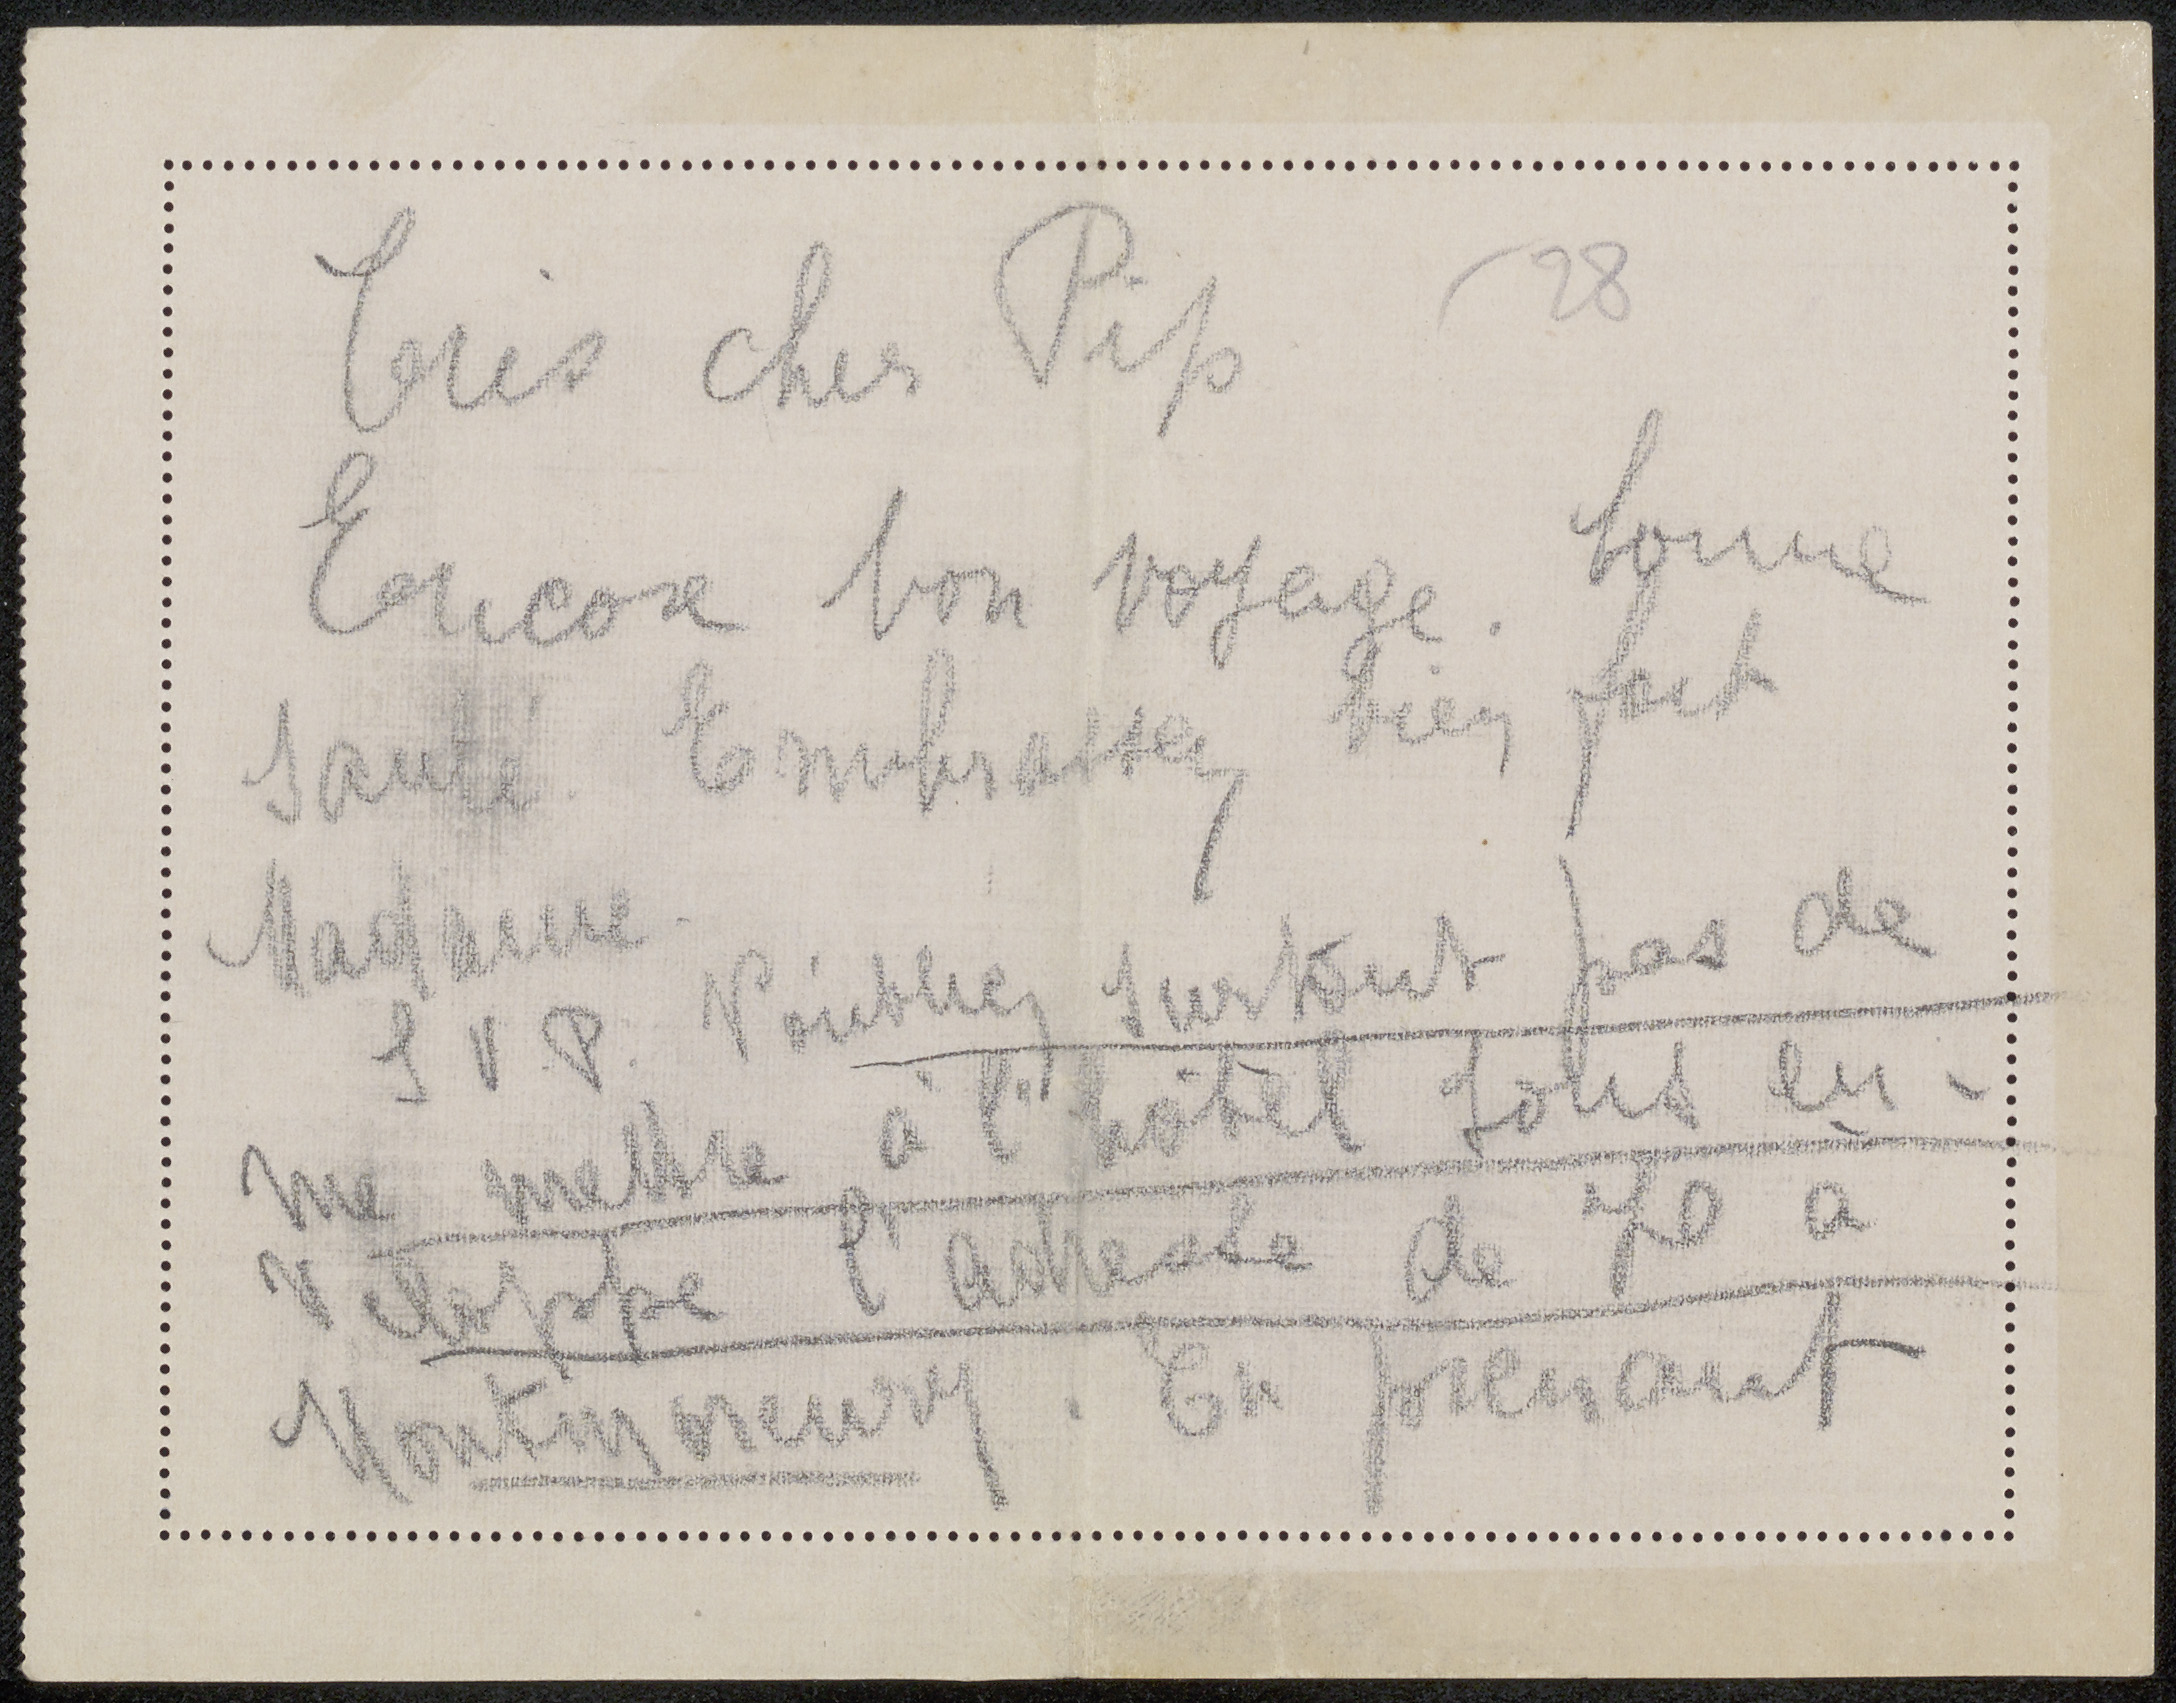 Très cher Pip
28
Encore bon voyage. bonne
santé. Embrassez bien fort
S V P. N'oubliez surtout pas de
me mettre à l'hôtel sous en-
veloppe l'adresse de Jo à
En prenant